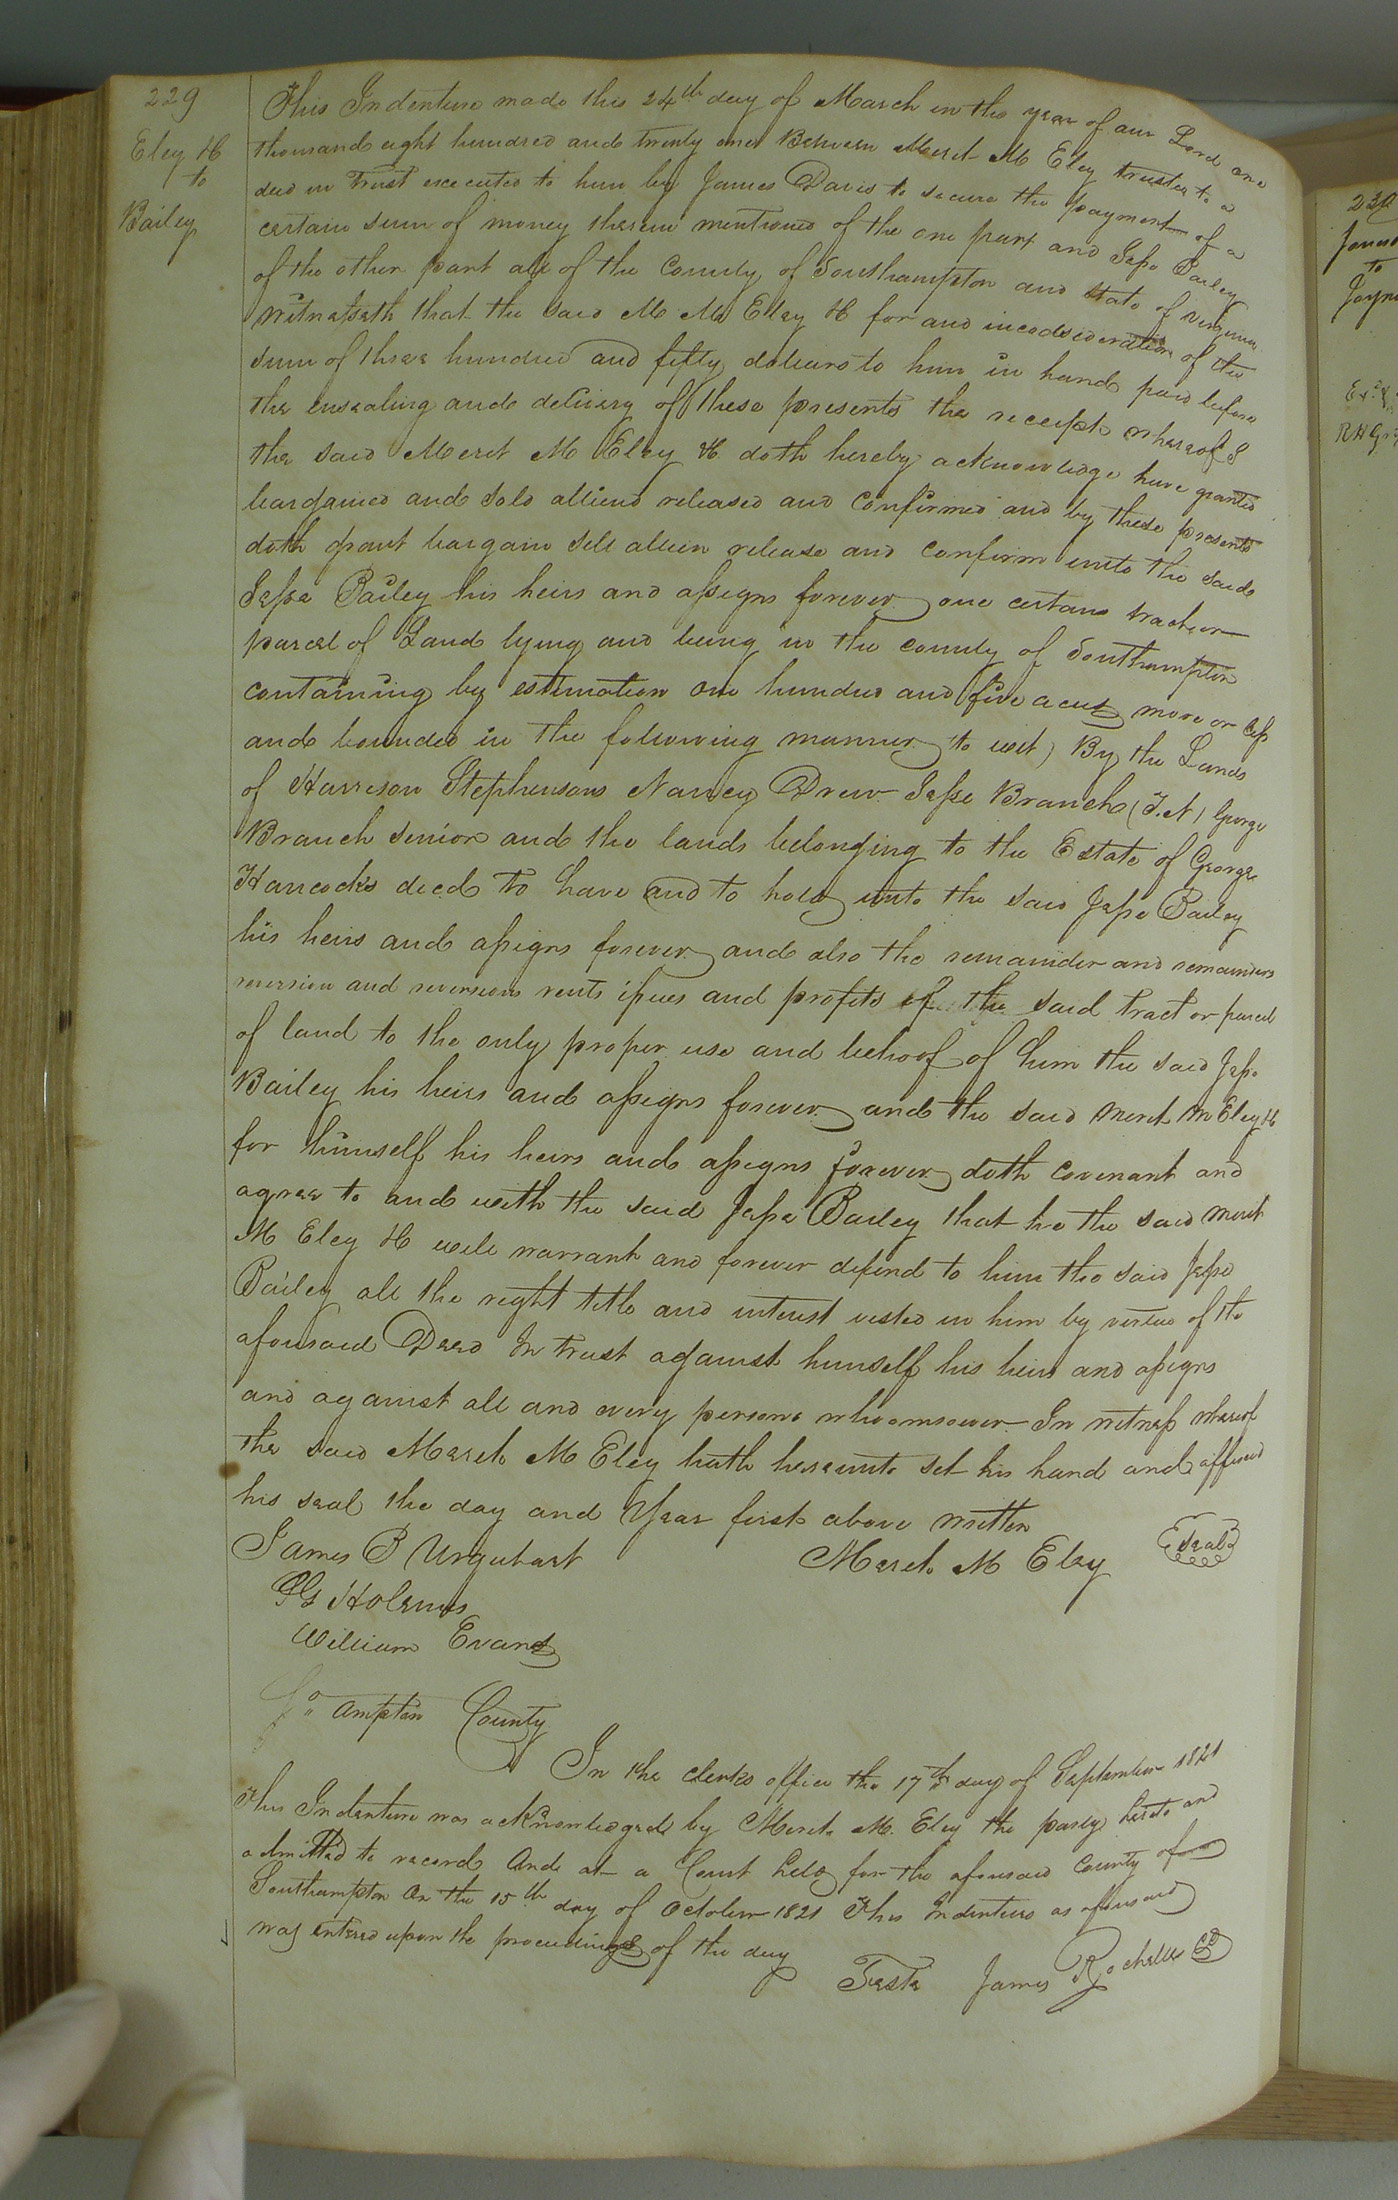 229
Eley tt
to
Bailey
This Indenture made this 24th day of March in the year of our Lord one
thousand eight hundred and twenty one Between Merit M Eley trustee to a
deed in Trust executed to him by James Davis to secure the payment of a
certain sum of money therein mentioned of the one part and Jesse Bailey
of the other part all of the County of Southampton and State of Virginia
witnesseth that the said M M Eley tt for and inconsideration of the
sum of three hundred and fifty dollars to him in hand paid before
the ensealing and delivery of these presents the receipt whereof I
the said Merit M Eley tt doth hereby acknowledge have granted
bargained and sold aliend released and confirmed and by these presents
doth grant bargain sell alien release and confirm unto the said
Jesse Bailey his heirs and assigns forever one certain tract or
parcel of Land lying and being in the county of Southampton
containing by estimation one hundred and five acres more or less
and bounded in the following manner to wit) By the Lands
of Harrison Stephensons Nancy Drew Jesse Branch (T.N) George
Branch senior and the lands belonging to the Estate of George
Hancocks decd To have and to hold unto the said Jesse Bailey
his heirs and assigns forever and also the remainder and remainders
reversion and reversions rents issues and profits of the said tract or parcel
of land to the only proper use and behoof of him the said Jesse
Bailey his heirs and assigns forever and the said Merit M Eley tt
for himself his heirs and assigns forever doth covenant and
agree to and with the said Jesse Bailey that he the said Merit
M Eley tt will warrant and forever defend to him the said Jesse
Bailey all the right title and interest vested in him by virtue of the
aforesaid Deed In trust against himself his heirs and assigns
and against all and every persons whomsoever In witness whereof
the said Merit M Eley hath hereunto set his hand and affixed
his seal the day and Year first above written
James B Urquhart Merit M Eley Seal
William Evans
So ampton County
In the clerks office the 17th day of September 1821
This Indenture was acknowledged by Merit M. Eley the party hereto and
admitted to record And at a Court held for the aforesaid County of
Southampton on the 15th day of October 1821 This Indenture as aforesaid
was entered upon the proceedings of the day
Teste James Rochelle
230
to